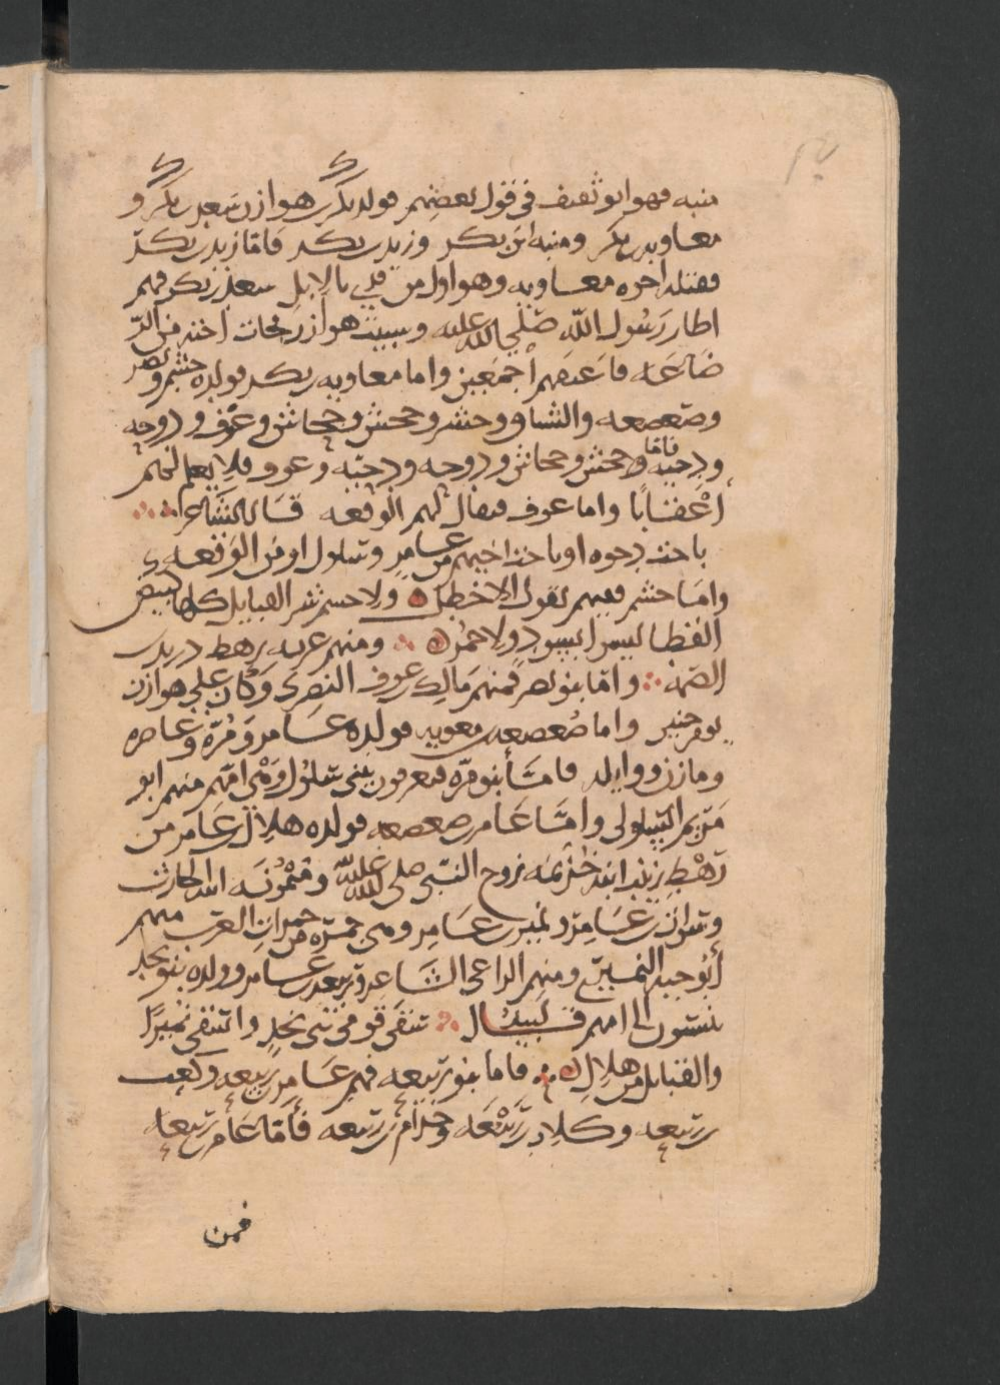 منبه فهو ابو ثقيف فى قول بعضهم فولد بكر بن هوازن سعد بن بكر و
معاويه بن بكر ومنبه ابن بكر وزيد بن بكر فاما زيد بن بكر
فقتله اخوه معاويه وهو اول من فدي بالابل سعد بن بكر فهم
اظار رسول الله صلي الله عليه وسبيت هوازن فجات اخته من الر
ضاعه فاعتقهم اجمعين واما معاويه بن بكر فولده جشم ونصر
وصعصعه والسباق وحشر وجحش وجحاش وعوف ودوحه
ودحنه فاما جحش وجحاش ودوحه ودحنه وعوف فلا يعلم لهم
اعقابا واما عوف فيقال لهم الوقعه قال الشاعر
ياخت دحوه او ياخت اخيهم من عامر وسلول او من الوقعه
واما جشم ففيهم يقول الاخطل ولا جشم شر القبايل كلها كبيض
القطا ليسوا بسود ولا حمر ومنهم غزيه رهط دريد بن
الصمه واما بنو نصر فمنهم مالك بن عوف النصرى وكان علي هوازن
يوم حنين واما صعصعه بن معويه فولده عامر ومره وغاضره
ومازن ووايله فاما بنو مره فيعرفون ببني سلول وهي امهم منهم ابو
مريم السلولى واما عامر بن صعصعه فولده هلال بن عامر من
رهط زينب ابنه خزيمه زوج النبي صلى الله عليه وميمونه ابنه الحارث
وسواه بن عامر ونمير بن عامر وهي جمره من جمرات العرب منهم
ابو حيه النميرى ومنهم الراعى الشاعر وربيعه بن عامر وولده بنو مجد
ينسبون الى امهم قال لبيد سقى قومى بنى مجد واسقى نميرا
والقبايل من هلال فاما بنو ربيعه فهم عامر بن ربيعه وكعب
بن ربيعه وكلاب بن ربيعه وجذام بن ربيعه فاما عامر بن ربيعه
فمن